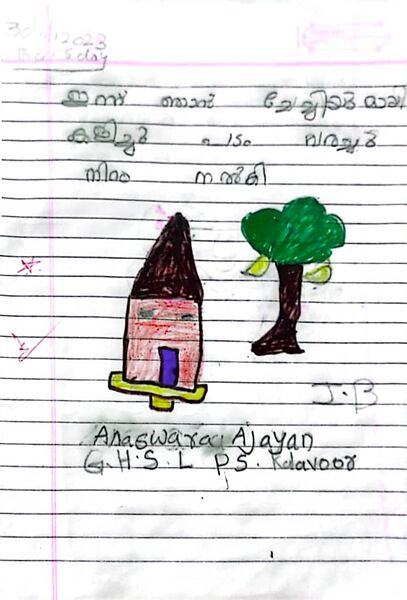 30/11/2023
Thursday
ഇന്ന് ഞാൻ ചേച്ചിയുമായി
കളിച്ചു പടം വരച്ചു
നിറം നൽകി
J.B
Anaswara Ajayan
G.H.S.L P.S. Kalavoor